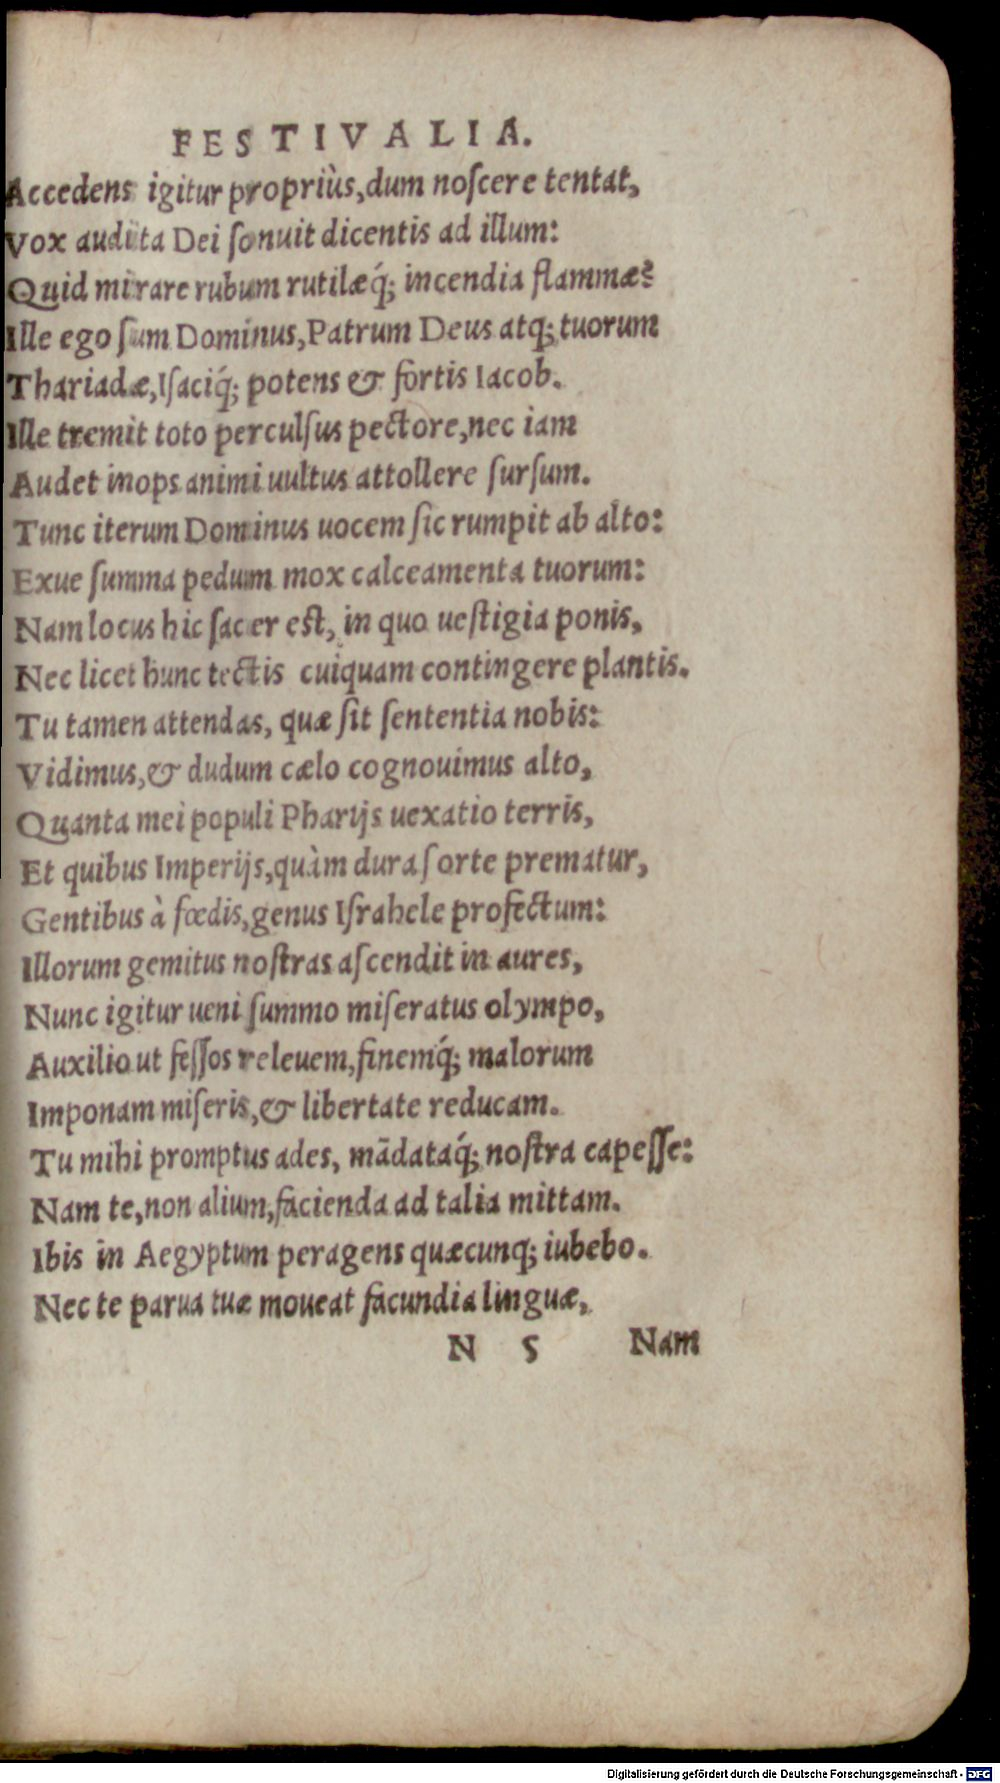 FESTIVALIA.
Accedens igitur propriùs, dum noſcere tentat,
Vox audita Dei ſonuit dicentis ad illum:
Quid mirare rubum rutilæq́; incendia flammæ?
Ille ego ſum Dominus, Patrum Deus atq; tuorum
Thariadæ, Iſaciq́; potens & fortis Iacob.
Ille tremit toto perculſus pectore, nec iam
Audet inops animi uultus attollere ſurſum.
Tunc iterum Dominus uocem ſic rumpit ab alto:
Exue ſumma pedum mox calceamenta tuorum:
Nam locus hic ſacer eſt, in quo ueſtigia ponis,
Nec licet hunc tectis cuiquam contingere plantis.
Tu tamen attendas, quæ ſit ſententia nobis:
Vidimus, & dudum cælo cognouimus alto,
Quanta mei populi Pharijs uexatio terris,
Et quibus Imperijs, quàm dura ſorte prematur,
Gentibus à fœdis, genus Iſrahele profectum:
Illorum gemitus noſtras aſcendit in aures,
Nunc igitur ueni ſummo miſeratus olympo,
Auxilio ut feſſos releuem, finemq́; malorum
Imponam miſeris, & libertate reducam.
Tu mihi promptus ades, mādataq́; noſtra capeſſe:
Nam te, non alium, facienda ad talia mittam.
Ibis in Aegyptum peragens quæcunq; iubebo.
Nec te parua tuæ moueat facundia linguæ,
N 5 Nam
Digitalisierung gefördert durch die Deutsche Forschungsgemeinschaft - DFG